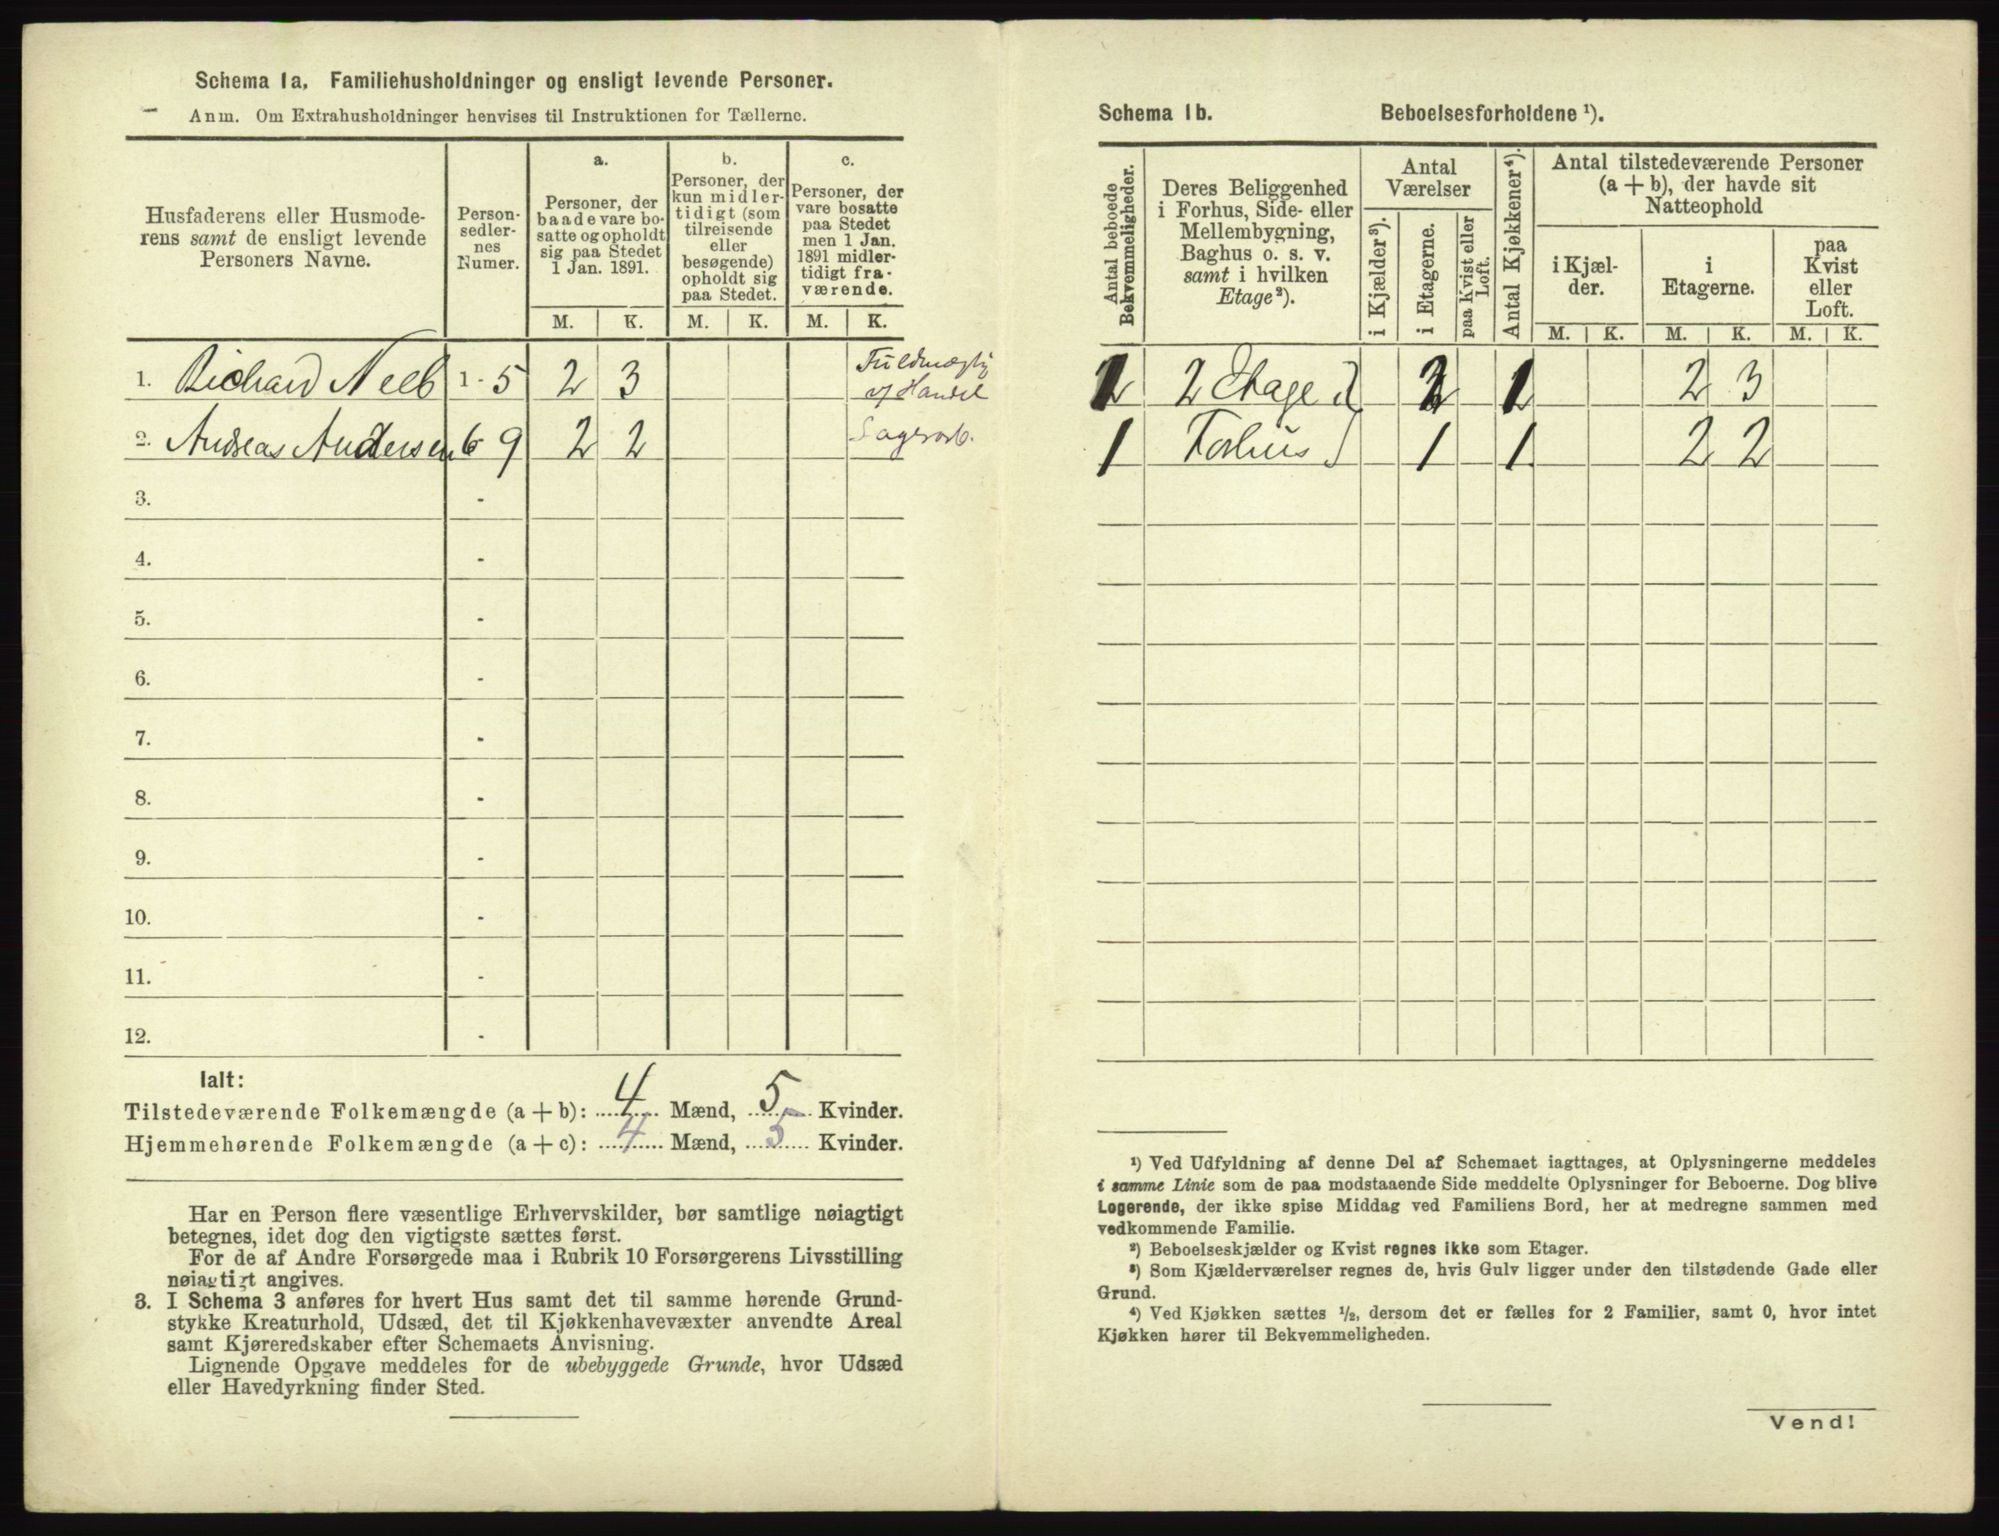 Schema 1a. Familiehusholdninger og ensligt levende Personer.
Anm. Om Extrahusholdninger henvises til Instruktionen for Tællerne.
Husfaderens eller Husmode-
rens samt de ensligt levende
Personers Navne.
Person-
sedler-
nes
Numer.
a.
Personer, der
baade vare bo-
satte og opholdt
sig paa Stedet
1 Jan. 1891.
M. K.
b.
Personer, der
kun midler-
tidigt (som
tilreisende
eller
besøgende)
opholdt sig
paa Stedet.
M. K.
c.
Personer, der
vare bosatte
paa Stedet
men 1 Jan.
1891 midler-
tidigt fra-
værende.
M. K.
1. Richard Neeb 1 - 5 2 3 Fuldmægtig
v/ Handel
2. Andreas Andersen 6 9 2 2 Lagerarb.
3. -
4. -
5. -
6. -
7. -
8. -
9. -
10. -
11. -
12. -
Ialt:
Tilstedeværende Folkemængde (a + b): 4 Mænd, 5 Kvinder.
Hjemmehørende Folkemængde (a + c): 4 Mænd, 5 Kvinder.
Har en Person flere væsentlige Erhvervskilder, bør samtlige nøiagtigt
betegnes, idet dog den vigtigste sættes først.
For de af Andre Forsørgede maa i Rubrik 10 Forsørgerens Livsstilling
nøiagtigt angives.
3. I Schema 3 anføres for hvert Hus samt det til samme hørende Grund-
stykke Kreaturhold, Udsæd, det til Kjøkkenhavevæxter anvendte Areal
samt Kjøreredskaber efter Schemaets Anvisning.
Lignende Opgave meddeles for de ubebyggede Grunde, hvor Udsæd
eller Havedyrkning finder Sted.
Schema 1b. Beboelsesforholdene ¹).
Antal beboede
Bekvemmeligheder.
Deres Beliggenhed
i Forhus, Side- eller
Mellembygning,
Baghus o. s. v.
samt i hvilken
Etage ²).
Antal
Værelser
i Kjælder ³).
i Etagerne.
paa Kvist eller
Loft.
Antal Kjøkkener ⁴).
Antal tilstedeværende Personer
(a + b), der havde sit
Natteophold
i Kjæl-
der.
M. K.
i
Etagerne.
M. K.
paa
Kvist
eller
Loft.
M. K.
1 2 Etage 2 1 2 3
1 Forhus 1 1 2 2
¹) Ved Udfyldning af denne Del af Schemaet iagttages, at Oplysningerne meddeles
i samme Linie som de paa modstaaende Side meddelte Oplysninger for Beboerne. Dog blive
Logerende, der ikke spise Middag ved Familiens Bord, her at medregne sammen med
vedkommende Familie.
²) Beboelseskjælder og Kvist regnes ikke som Etager.
³) Som Kjælderværelser regnes de, hvis Gulv ligger under den tilstødende Gade eller
Grund.
⁴) Ved Kjøkken sættes ½, dersom det er fælles for 2 Familier, samt 0, hvor intet
Kjøkken hører til Bekvemmeligheden.
Vend!